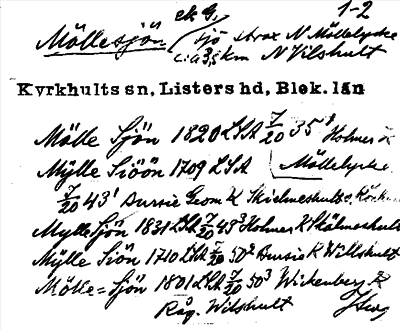 ek G. 1-2
Möllesjön sjö strax N Möllelycke
c:a 3,5 km N Vilshult
Kyrkhults sn, Listers hd, Blek. län
Mölle Sjön 1820 LSA 7/20 35¹ Holmer K
Mÿlle Siöön 1709 LSA Möllelycke
7/20 43¹ Bursie Geom K
Mylle Sjön 1831 LSA 7/20 49³ Holmer K Skälmeshult
Mÿlle Siön 1710 LSA 7/20 50² Bursie K Willshult
Mölle=Sjön 1801 LSA 7/20 50³ Wickenberg K
Råg. Wilshult